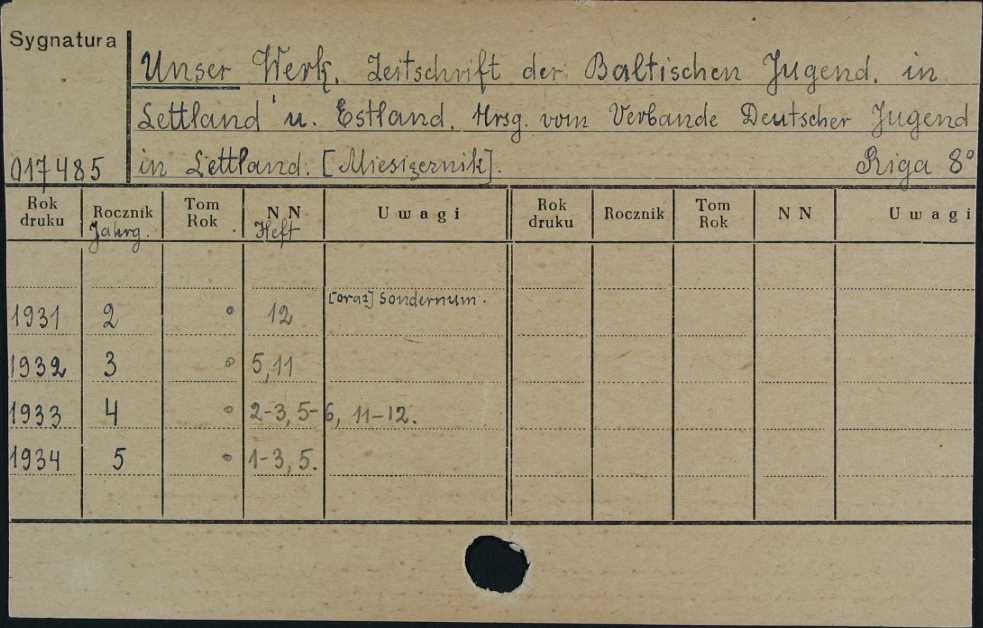 Sygnatura
Unser Werk. Zeitschrift der Baltischen Jugend. in
Lettland u. Estland. Hrsg. vom Verbande Deutscher Jugend
017485 in Lettland. [Miesięcznik]. Riga 8°
Rok druku Rocznik Tom Rok NN Uwagi Rok druku Rocznik Tom Rok NN Uwagi
Jahrg. Heft
[oraz] Sondernum.
1931 2 12
1932 3 5,11
1933 4 2-3, 5-6, 11-12.
1934 5 1-3, 5.